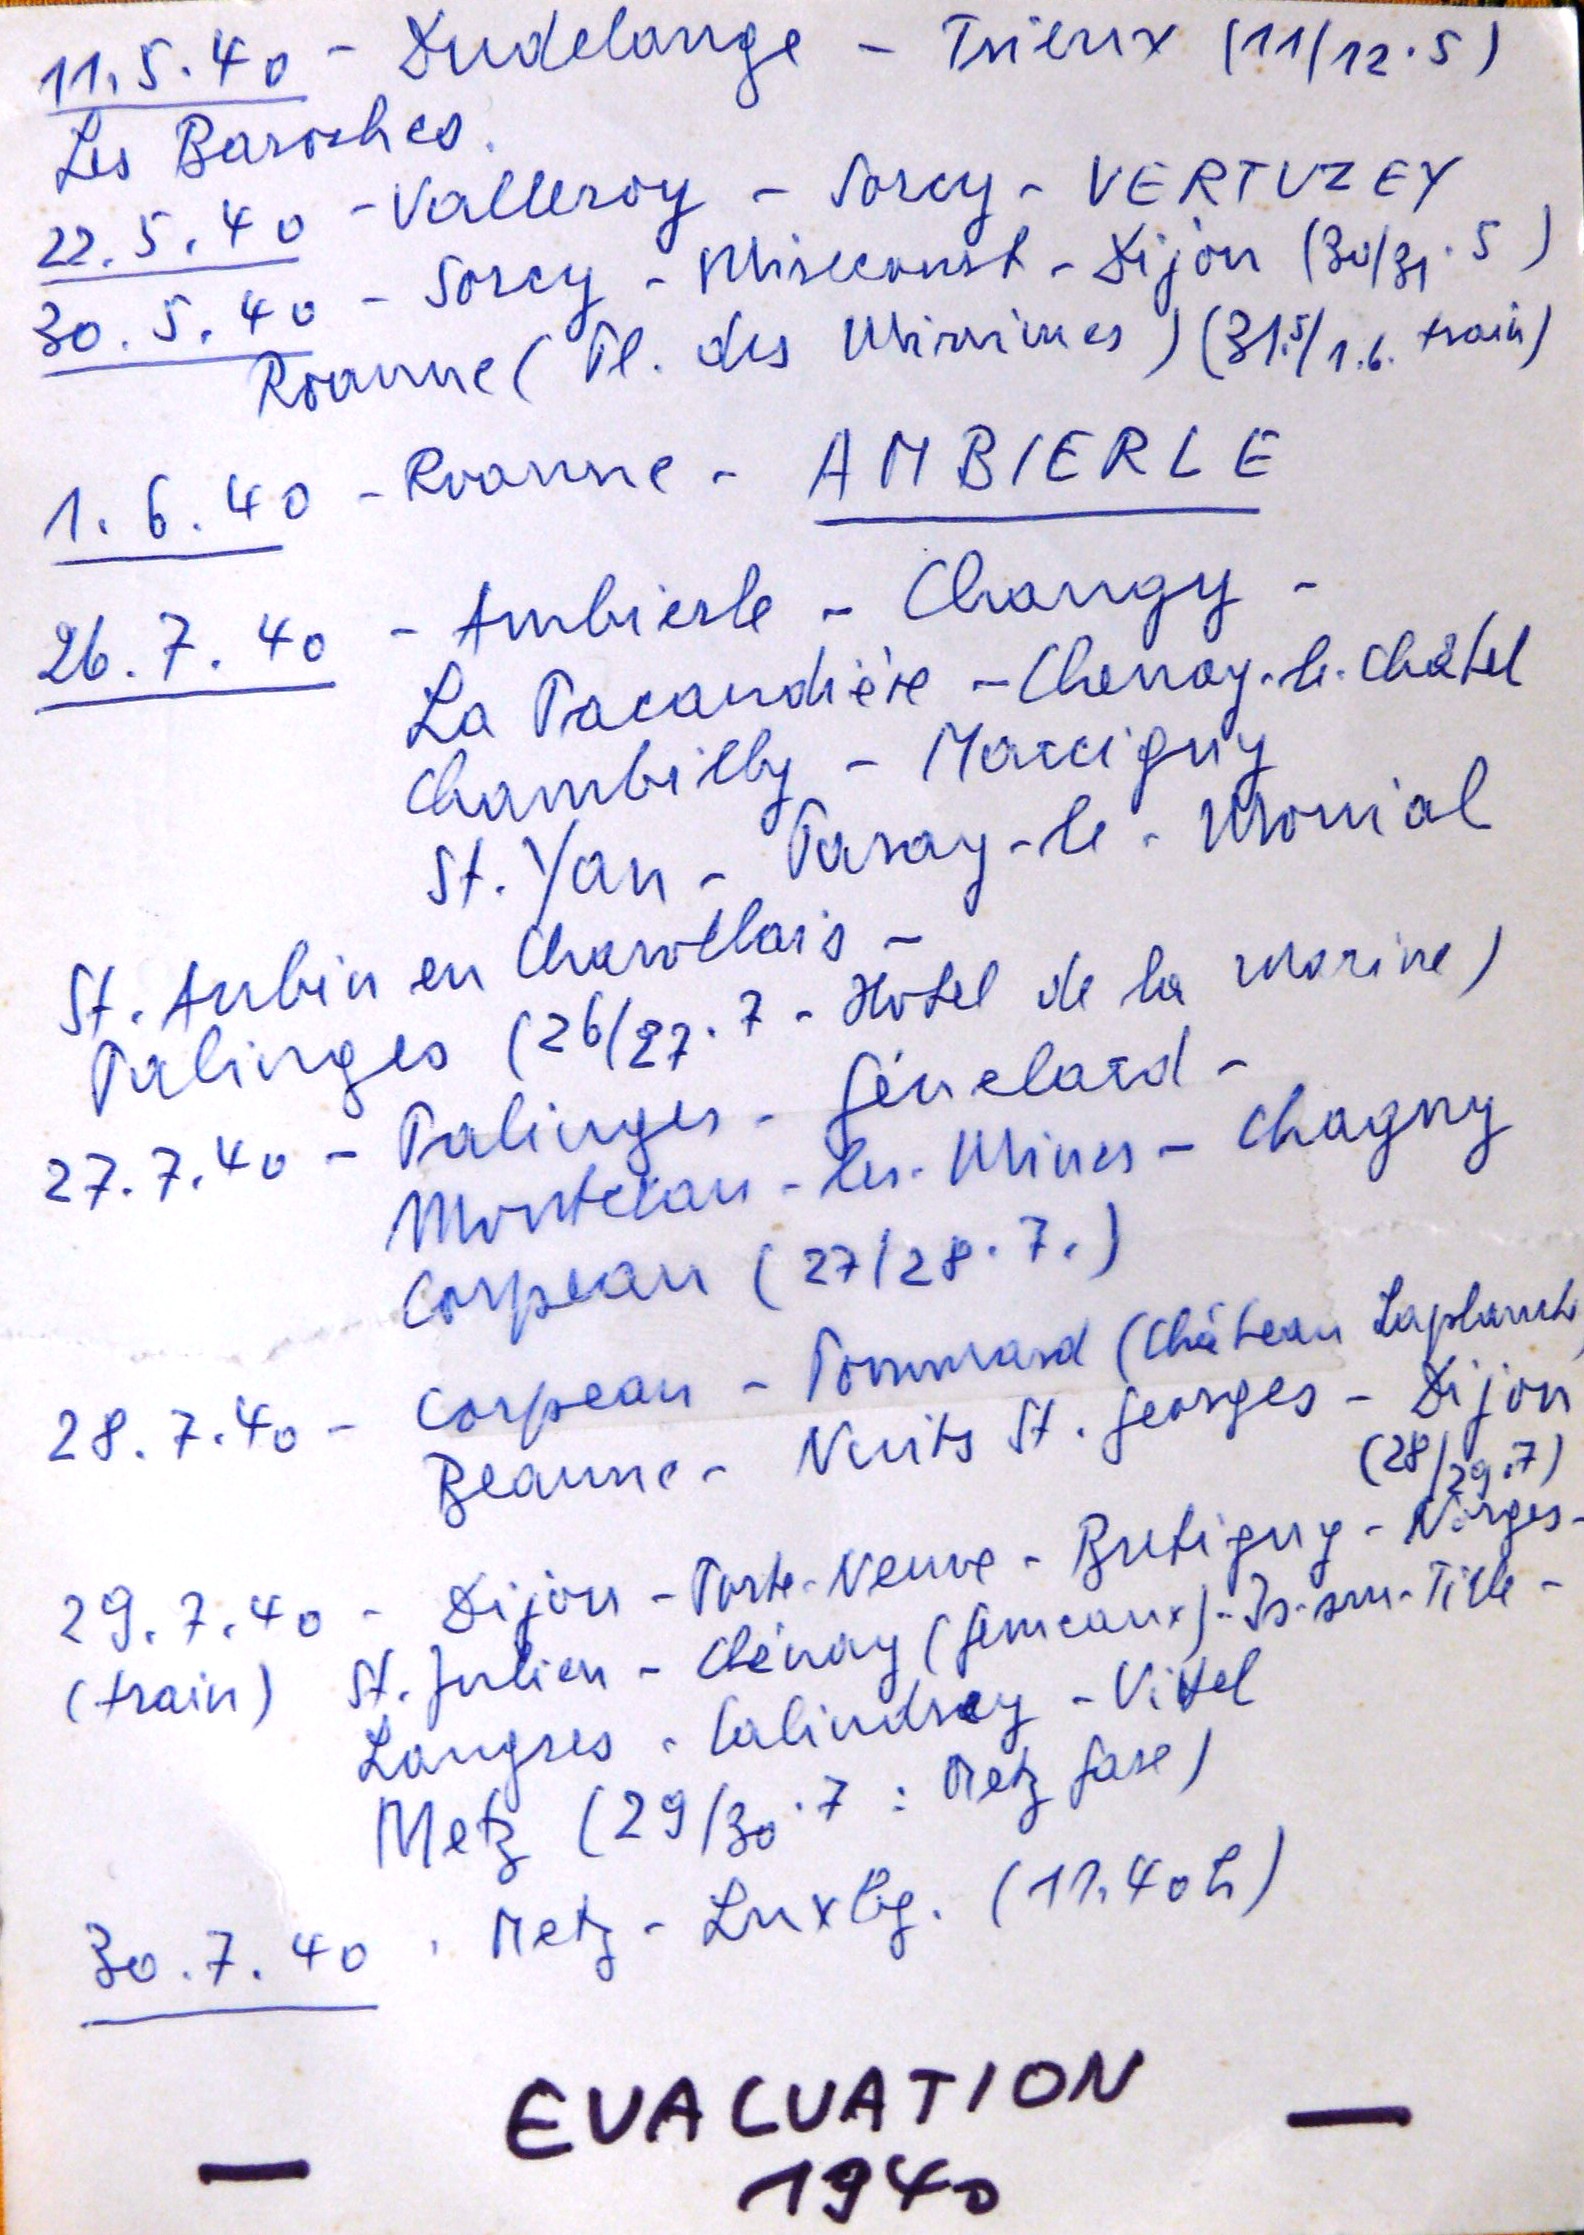 11.5.40 - Dudelange - Trieux (11/12.5)
Les Baroches.
22.5.40 - Valleroy - Sorcy - VERTUZEY
30.5.40 - Sorcy - Mirecourt - Dijon (30/31.5)
Roanne (Pl. des Minimes) (31.5/1.6. train)
1.6.40 - Roanne - AMBIERLE
26.7.40 - Ambierle - Changy -
La Pacaudière - Chenay-le-Châtel
Chambilly - Marcigny
St. Yan - Paray-le-Monial
St. Aubin en Charollais -
Palinges (26/27.7 - Hotel de la Marine)
27.7.40 - Palinges - Génelard -
Montceau-les-Mines - Chagny
Corpeau (27/28.7.)
28.7.40 - Corpeau - Pommard (Château Laplanche)
Beaune - Nuits St. Georges - Dijon
(28/29.7)
29.7.40 - Dijon - Porte-Neuve - Bretigny - Norges -
(train) St. Julien - Chénay (Gemeaux) - Is-sur-Tille -
Langres - Calindrey - Vittel
Metz (29/30.7 : Metz Gare)
30.7.40 - Metz - Luxbg. (11.40h)
- EVACUATION -
1940